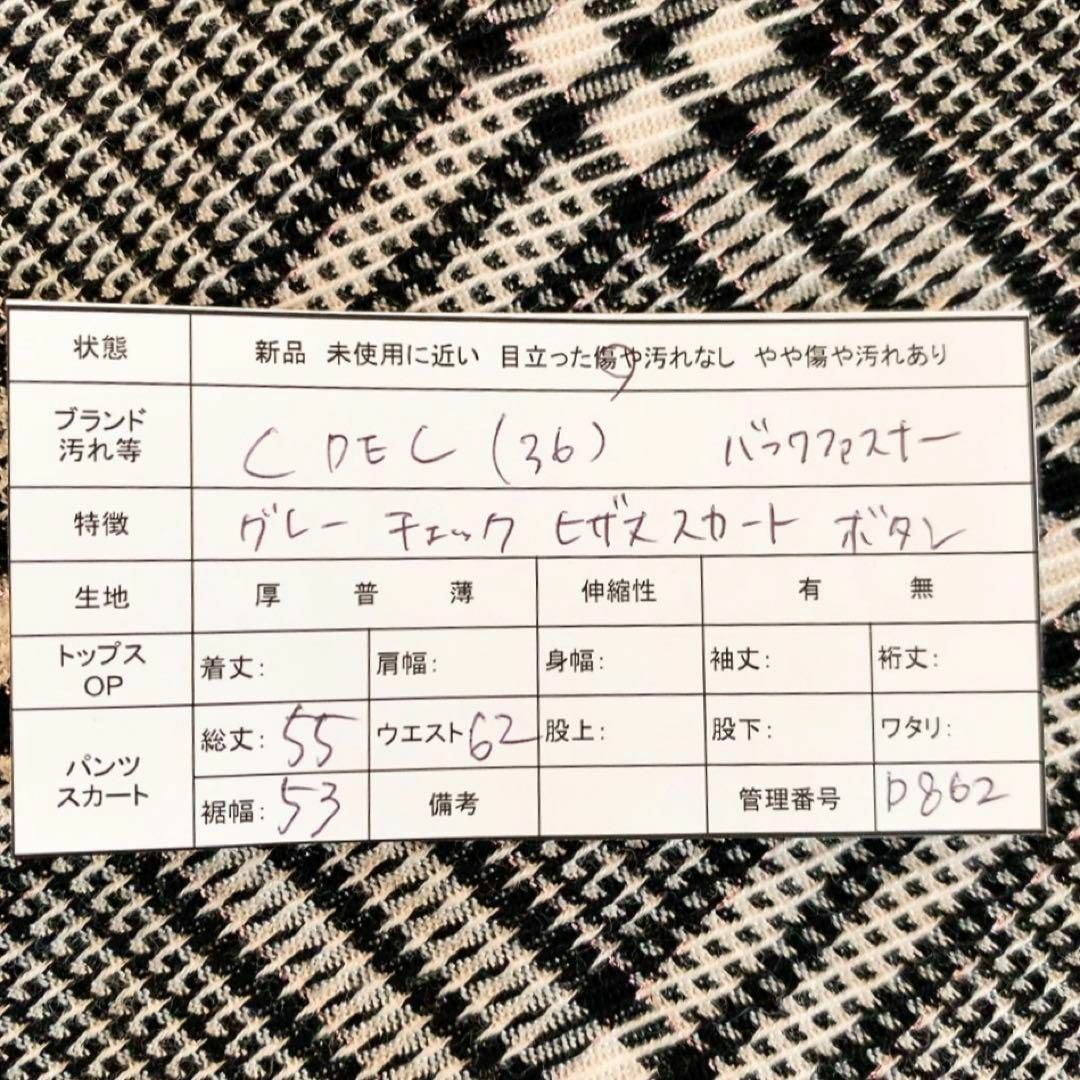 状態 新品 未使用に近い 目立った傷や汚れなし やや傷や汚れあり
ブランド
汚れ等 CDEC (36) バックファスナー
特徴 グレー チェック ヒザ丈 スカート ボタン
生地 厚 普 薄 伸縮性 有 無
トップス
OP 着丈: 肩幅: 身幅: 袖丈: 裄丈:
パンツ
スカート 総丈: 55 ウエスト 62 股上: 股下: ワタリ:
裾幅: 53 備考 管理番号 D862